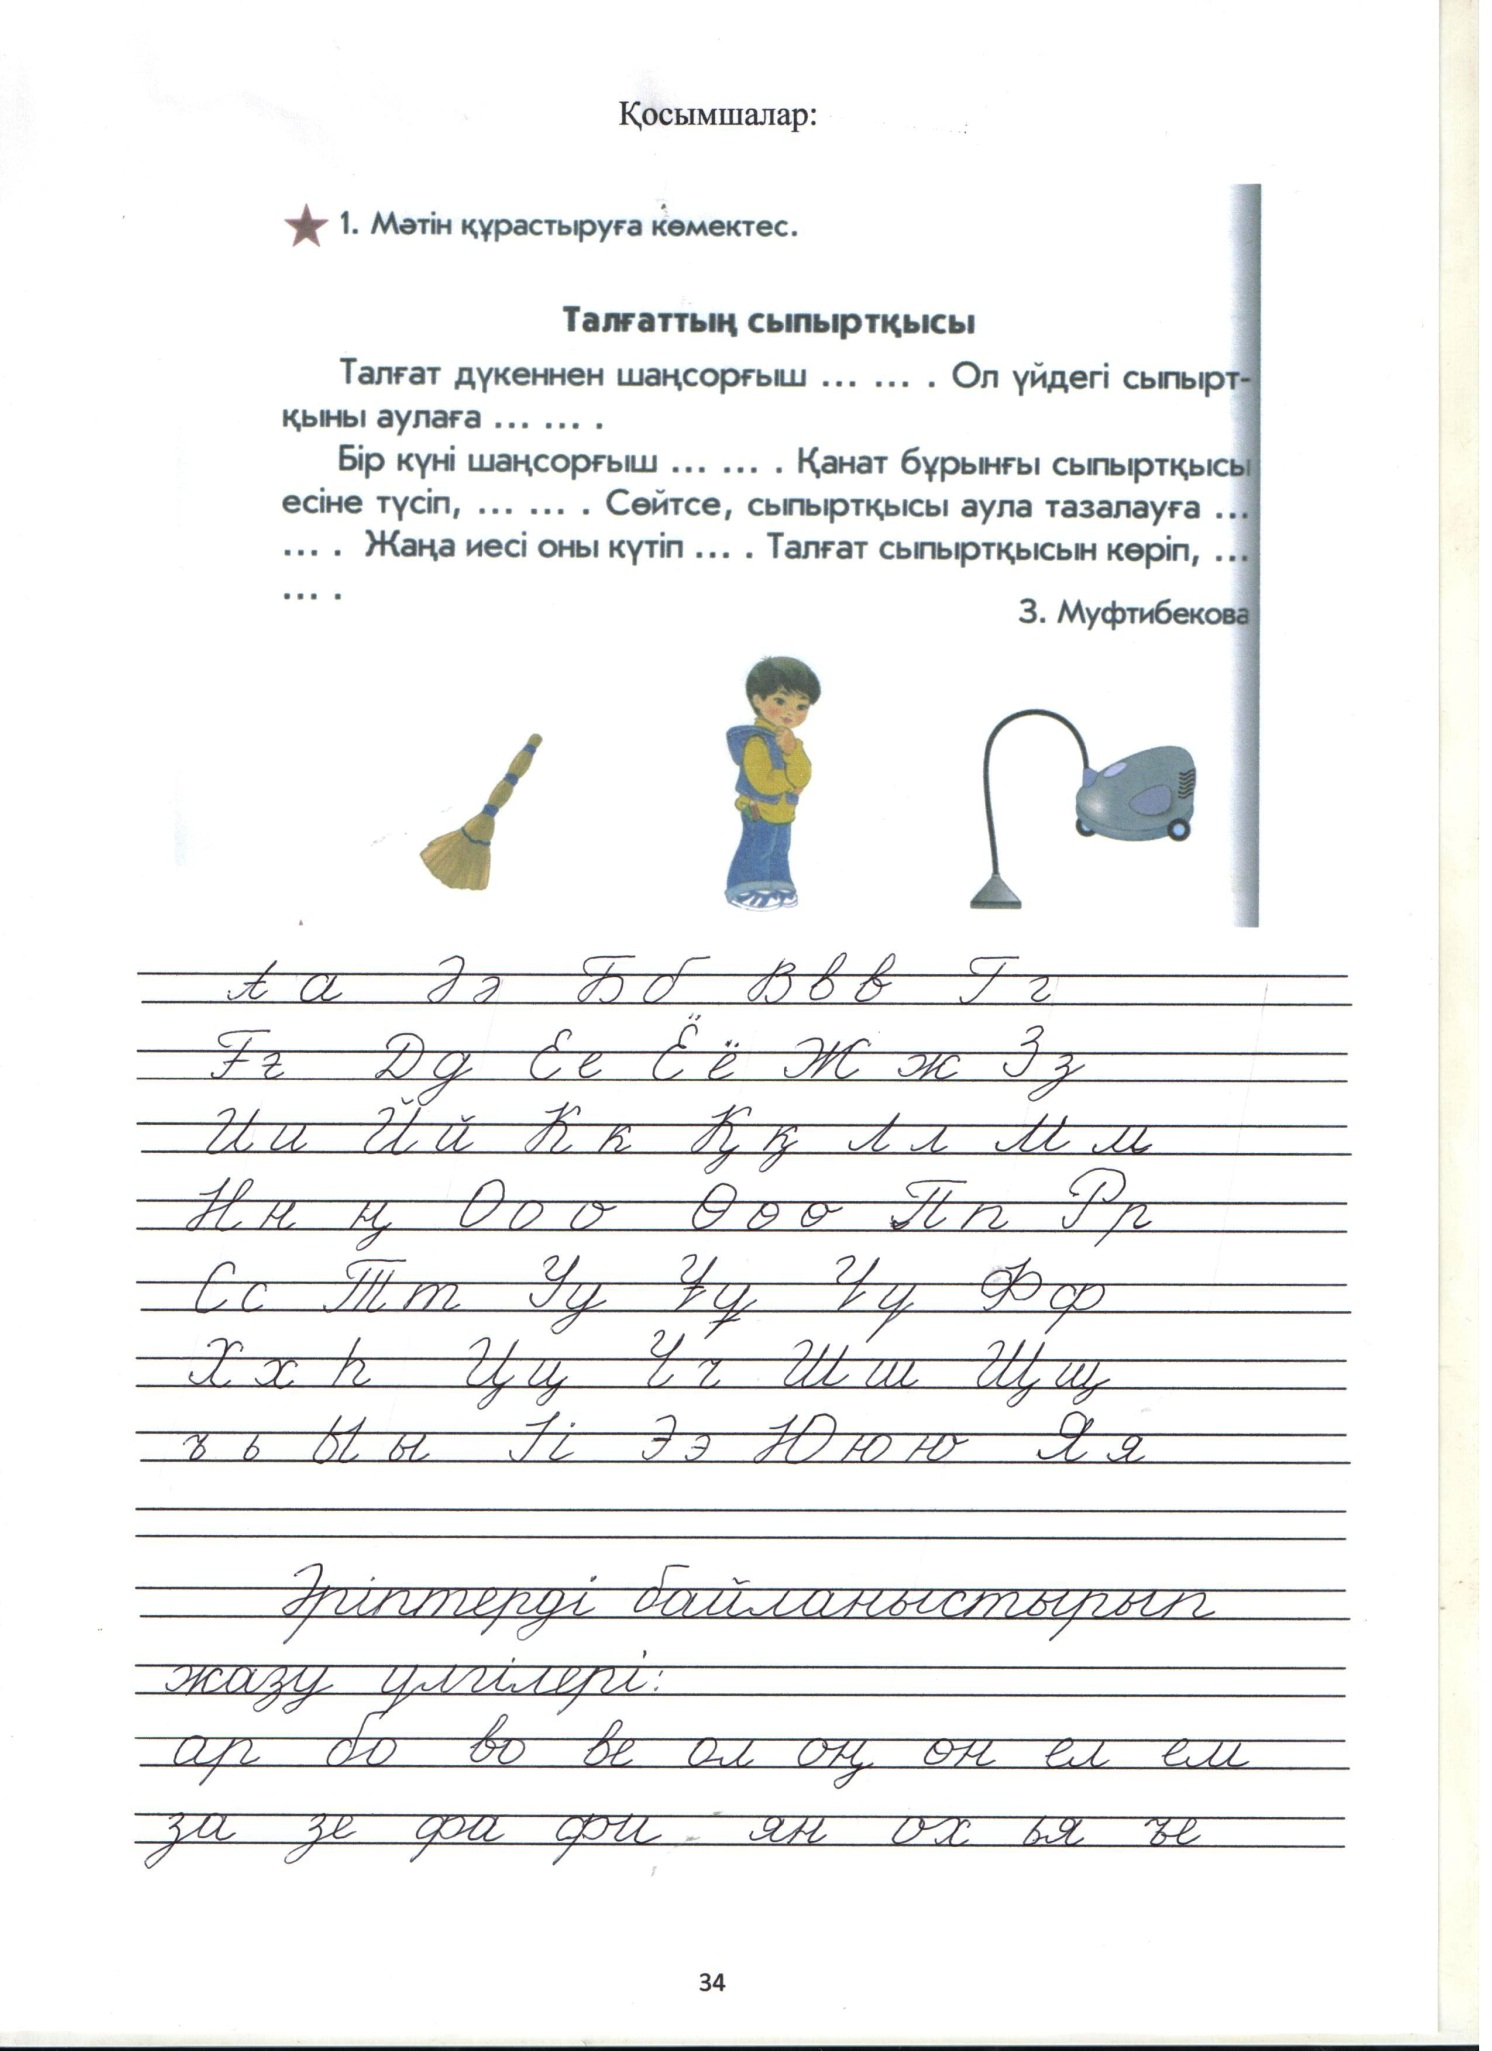 Қосымшалар:
1. Мәтін құрастыруға көмектес.
Талғаттың сыпыртқысы
Талғат дүкеннен шаңсорғыш ... ... . Ол үйдегі сыпырт-
қыны аулаға ... ... .
Бір күні шаңсорғыш ... ... . Қанат бұрынғы сыпыртқысы
есіне түсіп, ... ... . Сөйтсе, сыпыртқысы аула тазалауға ...
... . Жаңа иесі оны күтіп ... . Талғат сыпыртқысын көріп, ...
... .
З. Муфтибекова
А а Ә ә Б б В в в Г г
Ғ ғ Д д Е е Ё ё Ж ж З з
И и Й й К к Қ қ Л л М м
Н н ң О о о Ө ө ө П п Р р
С с Т т У у Ұ ұ Ү ү Ф ф
Х х һ Ц ц Ч ч Ш ш Щ щ
ъ ь Ы ы І і Э э Ю ю ю Я я
Әріптерді байланыстырып
жазу үлгілері:
ар бо во ве ол оң он ел ем
за зе фа фи ян ох ья ъе
34